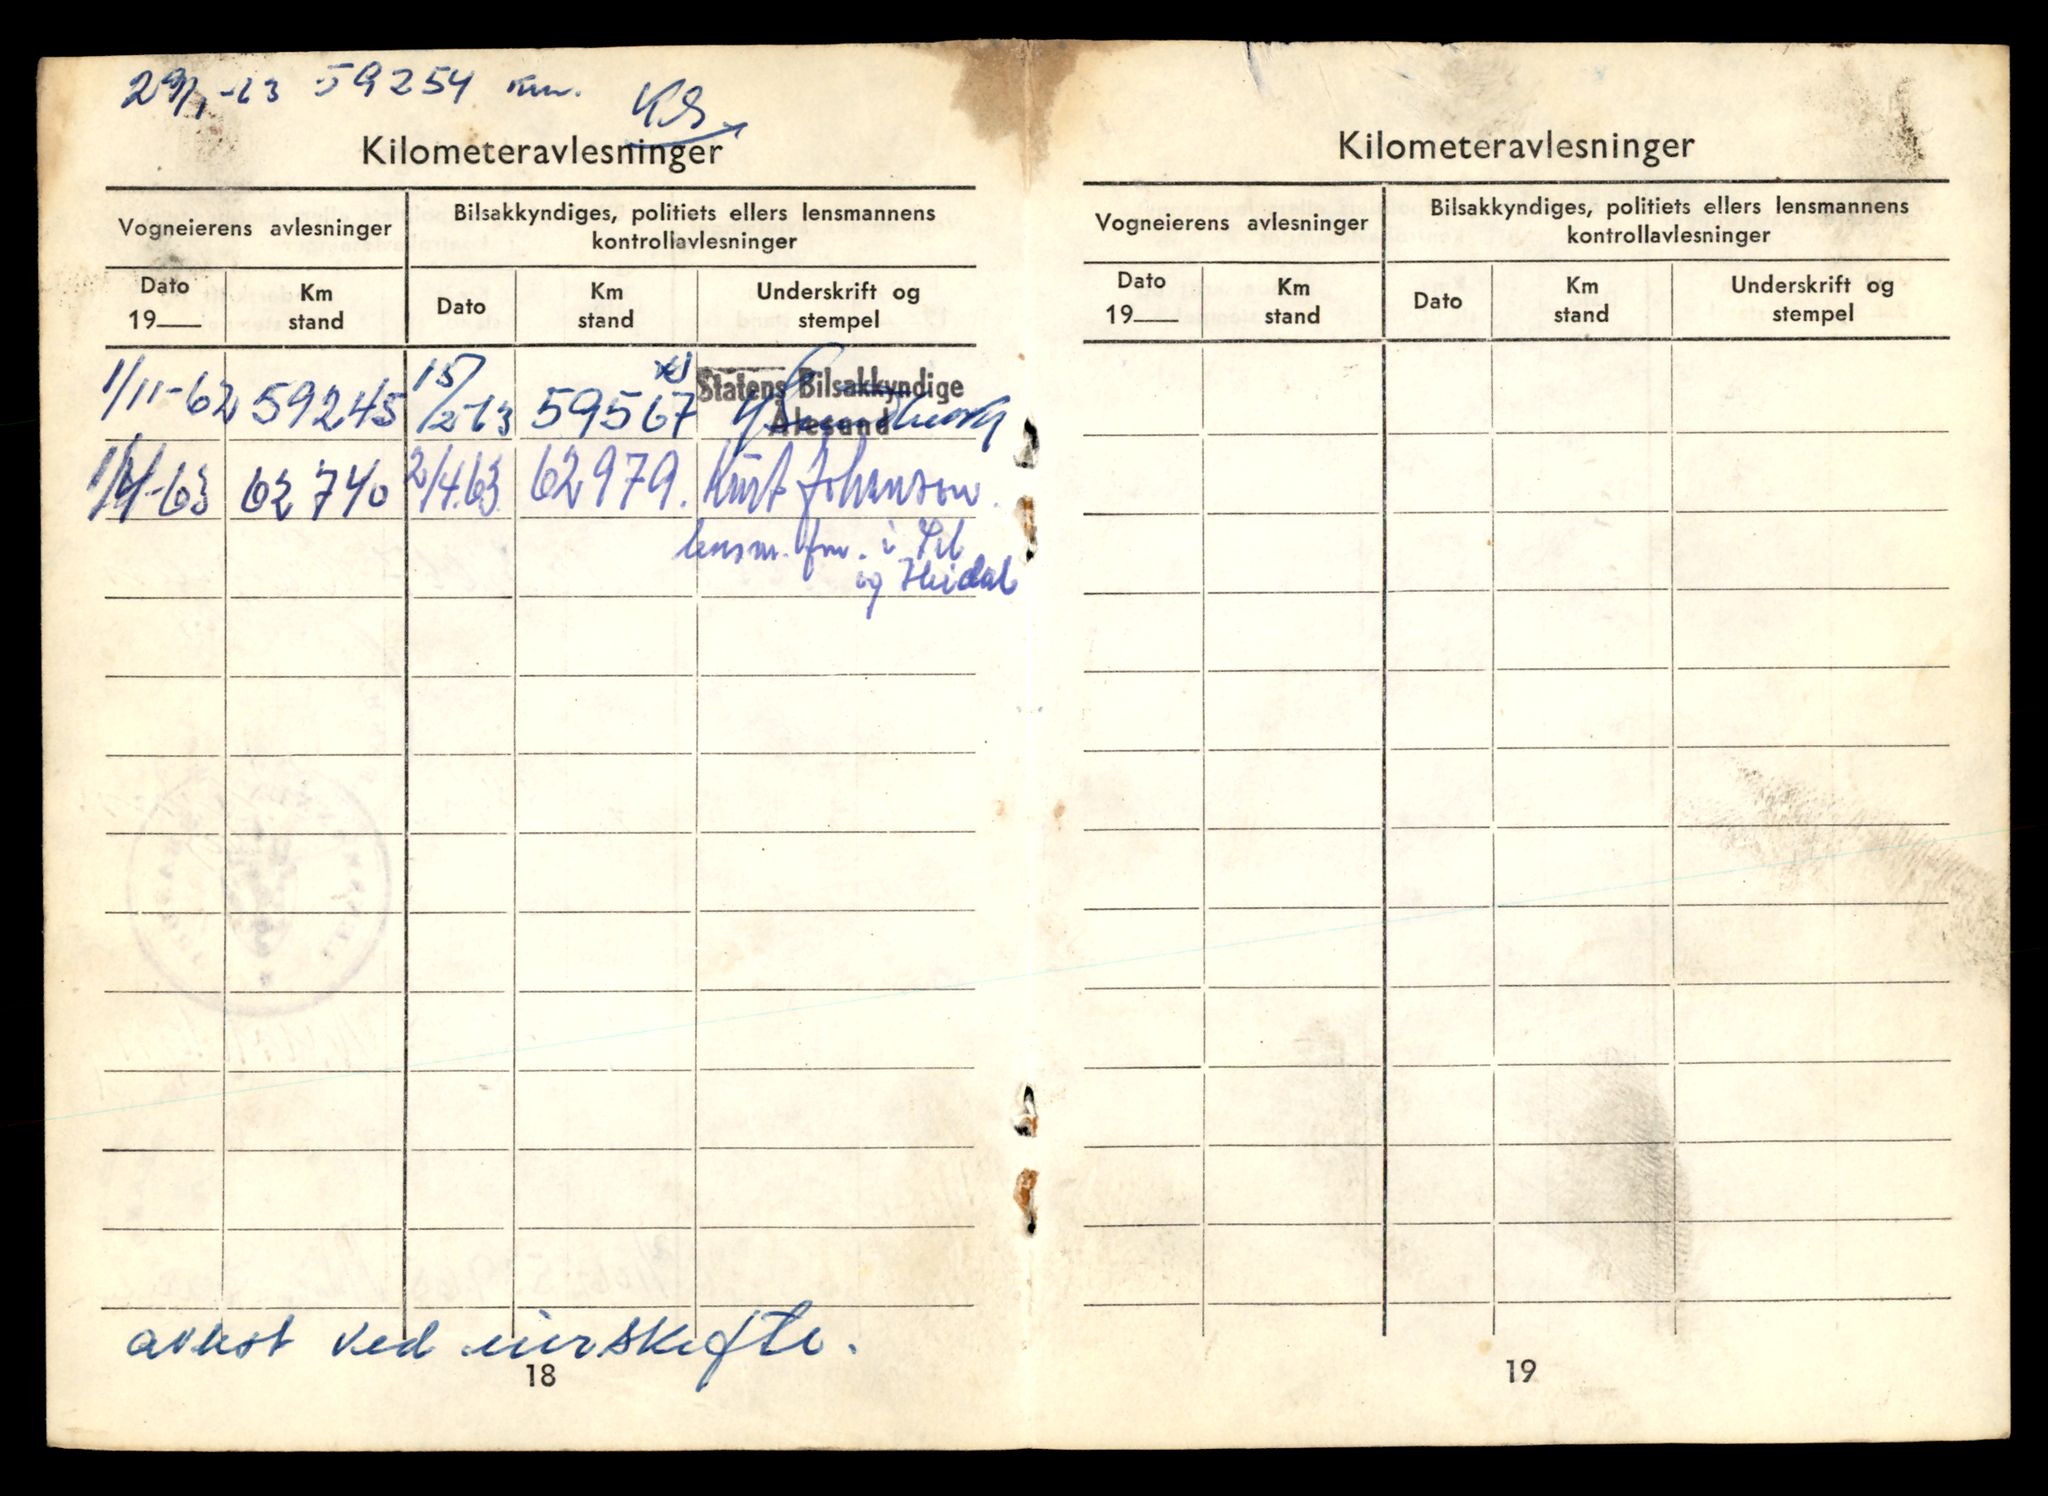 29/1-63 59254 km. KS
Kilometeravlesninger
Vogneierens avlesninger
Bilsakkyndiges, politiets ellers lensmannens
kontrollavlesninger
Dato
19
Km
stand
Dato
Km
stand
Underskrift og
stempel
1/11-62 59245 15/2-63 59567
Statens Bilsakkyndige
Ålesund
1/4-63 62740 2/4.63. 62979. Kurt Johansen.
lensm. fm. i Sel
og Heidal
avlest ved eierskifte.
18
Kilometeravlesninger
Vogneierens avlesninger
Bilsakkyndiges, politiets ellers lensmannens
kontrollavlesninger
Dato
19
Km
stand
Dato
Km
stand
Underskrift og
stempel
19